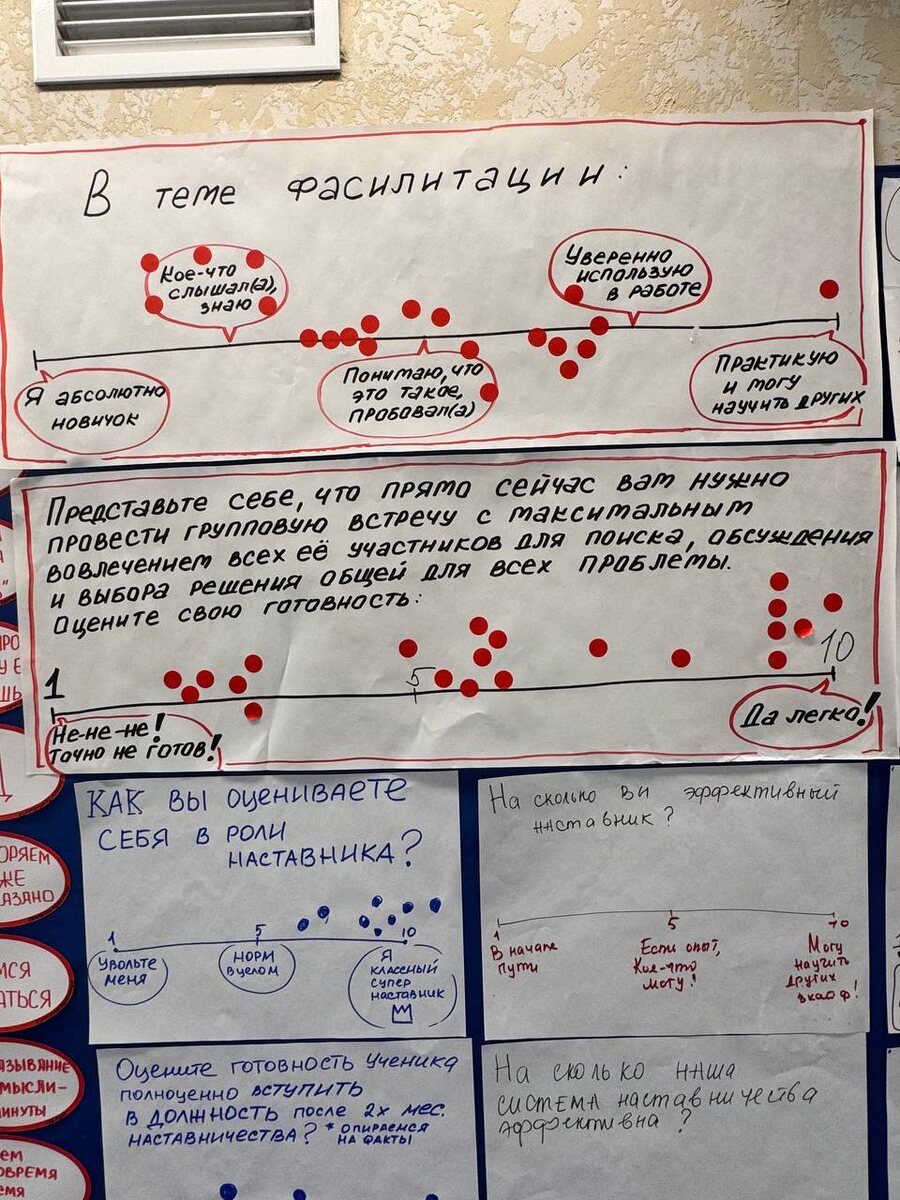 В теме фасилитации:
Кое-что
слышал(а),
знаю
Уверенно
использую
в работе
Я абсолютно
новичок
Понимаю, что
это такое,
пробовал(а)
Практикую
и могу
научить других
Представьте себе, что прямо сейчас вам нужно
провести групповую встречу с максимальным
вовлечением всех её участников для поиска, обсуждения
и выбора решения общей для всех проблемы.
Оцените свою готовность:
1
5
10
Не-не-не!
Точно не готов!
Да легко!
Как вы оцениваете
себя в роли
наставника?
1
5
10
Увольте
меня
норм
в целом
Я
классный
супер
наставник
На сколько ви эффективный
наставник?
1
5
10
В начале
пути
Если опыт,
Кое-что
могу!
Могу
научить
других
Оцените готовность ученика
полноценно вступить
в должность после 2х мес.
наставничества? * опираемся
на факты
На сколько наша
система наставничества
эффективна?